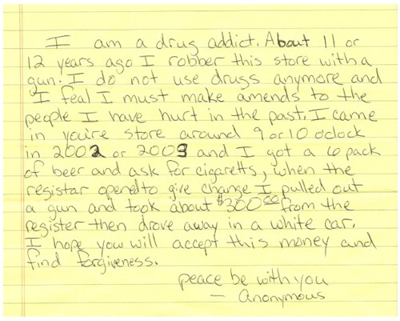 I am a drug addict. About 11 or
12 years ago I robber this store with a
gun. I do not use drugs anymore and
I feal I must make amends to the
people I have hurt in the past. I came
in you're store around 9 or 10 oclock
in 2002 or 2003 and I got a 6 pack
of beer and ask for cigaretts, when the
registar opened to give change I pulled out
a gun and took about $300.00 from the
register then drove away in a white car.
I hope you will accept this money and
find forgiveness.
peace be with you
- Anonymous